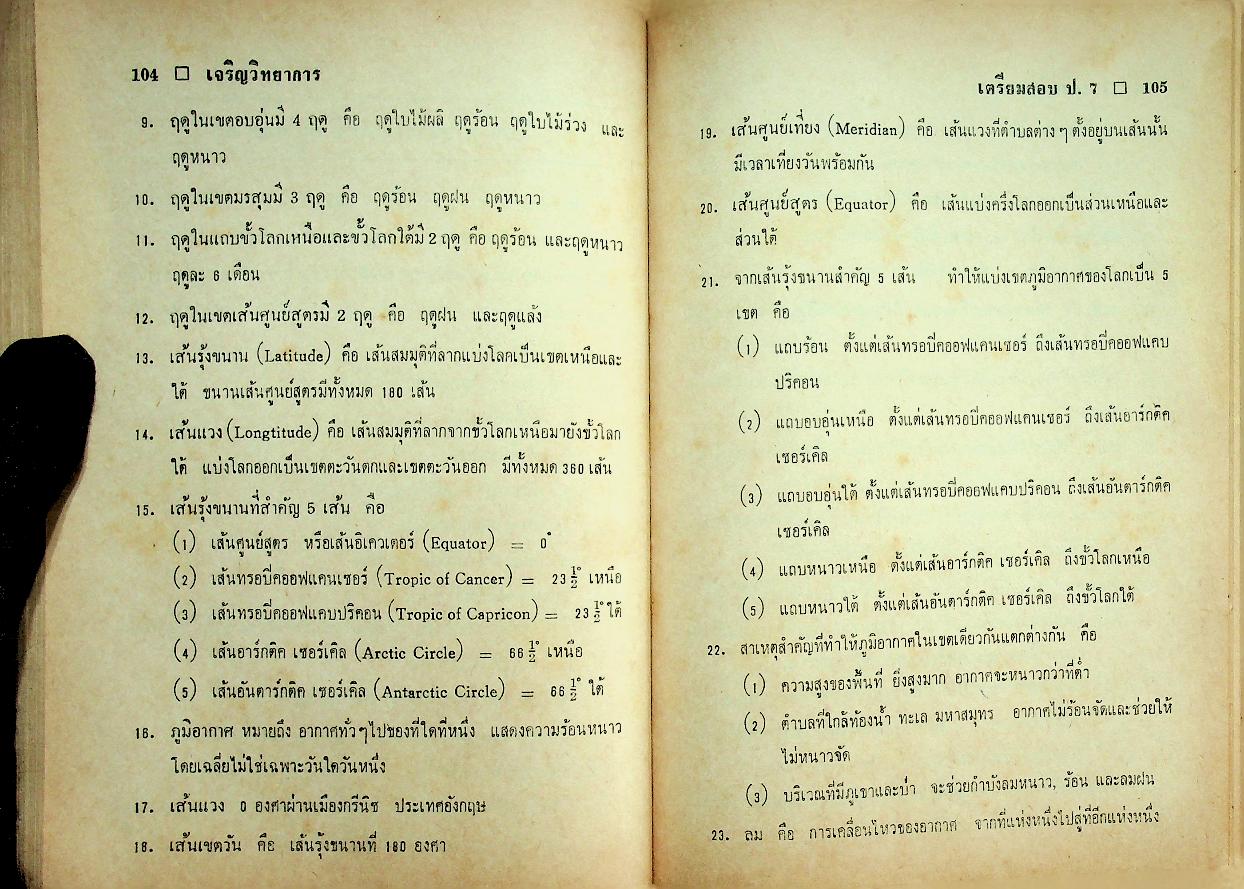 104 □ เจริญวิทยาการ
9. ฤดูในเขตอบอุ่นมี 4 ฤดู คือ ฤดูใบไม้ผลิ ฤดูร้อน ฤดูใบไม้ร่วง และ
ฤดูหนาว
10. ฤดูในเขตมรสุมมี 3 ฤดู คือ ฤดูร้อน ฤดูฝน ฤดูหนาว
11. ฤดูในแถบขั้วโลกเหนือและขั้วโลกใต้มี 2 ฤดู คือ ฤดูร้อน และฤดูหนาว
ฤดูละ 6 เดือน
12. ฤดูในเขตเส้นศูนย์สูตรมี 2 ฤดู คือ ฤดูฝน และฤดูแล้ง
13. เส้นรุ้งขนาน (Latitude) คือ เส้นสมมุติที่ลากแบ่งโลกเป็นเขตเหนือและ
ใต้ ขนานเส้นศูนย์สูตรมีทั้งหมด 180 เส้น
14. เส้นแวง (Longtitude) คือ เส้นสมมุติที่ลากจากขั้วโลกเหนือมายังขั้วโลก
ใต้ แบ่งโลกออกเป็นเขตตะวันตกและเขตตะวันออก มีทั้งหมด 360 เส้น
15. เส้นรุ้งขนานที่สำคัญ 5 เส้น คือ
(1) เส้นศูนย์สูตร หรือเส้นอิเควเตอร์ (Equator) = 0°
(2) เส้นทรอปี่คออฟแคนเซอร์ (Tropic of Cancer) = 23 ½° เหนือ
(3) เส้นทรอปี่คออฟแคปปริคอน (Tropic of Capricon) = 23 ½° ใต้
(4) เส้นอาร์กติค เซอร์เคิล (Arctic Circle) = 66 ½° เหนือ
(5) เส้นอันตาร์กติค เซอร์เคิล (Antarctic Circle) = 66 ½° ใต้
16. ภูมิอากาศ หมายถึง อากาศทั่วๆไปของที่ใดที่หนึ่ง แสดงความร้อนหนาว
โดยเฉลี่ยไม่ใช่เฉพาะวันใดวันหนึ่ง
17. เส้นแวง 0 องศาผ่านเมืองกรีนิช ประเทศอังกฤษ
18. เส้นเขตวัน คือ เส้นรุ้งขนานที่ 180 องศา
เตรียมสอบ ป. 7 □ 105
19. เส้นศูนย์เที่ยง (Meridian) คือ เส้นแวงที่ตำบลต่าง ๆ ตั้งอยู่บนเส้นนั้น
มีเวลาเที่ยงวันพร้อมกัน
20. เส้นศูนย์สูตร (Equator) คือ เส้นแบ่งครึ่งโลกออกเป็นส่วนเหนือและ
ส่วนใต้
21. จากเส้นรุ้งขนานสำคัญ 5 เส้น ทำให้แบ่งเขตภูมิอากาศของโลกเป็น 5
เขต คือ
(1) แถบร้อน ตั้งแต่เส้นทรอปี่คออฟแคนเซอร์ ถึงเส้นทรอปี่คออฟแคบ
ปริคอน
(2) แถบอบอุ่นเหนือ ตั้งแต่เส้นทรอปี่คออฟแคนเซอร์ ถึงเส้นอาร์กติค
เซอร์เคิล
(3) แถบอบอุ่นใต้ ตั้งแต่เส้นทรอปี่คออฟแคบปริคอน ถึงเส้นอันตาร์กติค
เซอร์เคิล
(4) แถบหนาวเหนือ ตั้งแต่เส้นอาร์กติค เซอร์เคิล ถึงขั้วโลกเหนือ
(5) แถบหนาวใต้ ตั้งแต่เส้นอันตาร์กติค เซอร์เคิล ถึงขั้วโลกใต้
22. สาเหตุสำคัญที่ทำให้ภูมิอากาศในเขตเดียวกันแตกต่างกัน คือ
(1) ความสูงของพื้นที่ ยิ่งสูงมาก อากาศจะหนาวกว่าที่ต่ำ
(2) ตำบลที่ใกล้ท้องน้ำ ทะเล มหาสมุทร อากาศไม่ร้อนจัดและช่วยให้
ไม่หนาวจัด
(3) บริเวณที่มีภูเขาและป่า จะช่วยกำบังลมหนาว, ร้อน และลมฝน
23. ลม คือ การเคลื่อนไหวของอากาศ จากที่แห่งหนึ่งไปสู่ที่อีกแห่งหนึ่ง